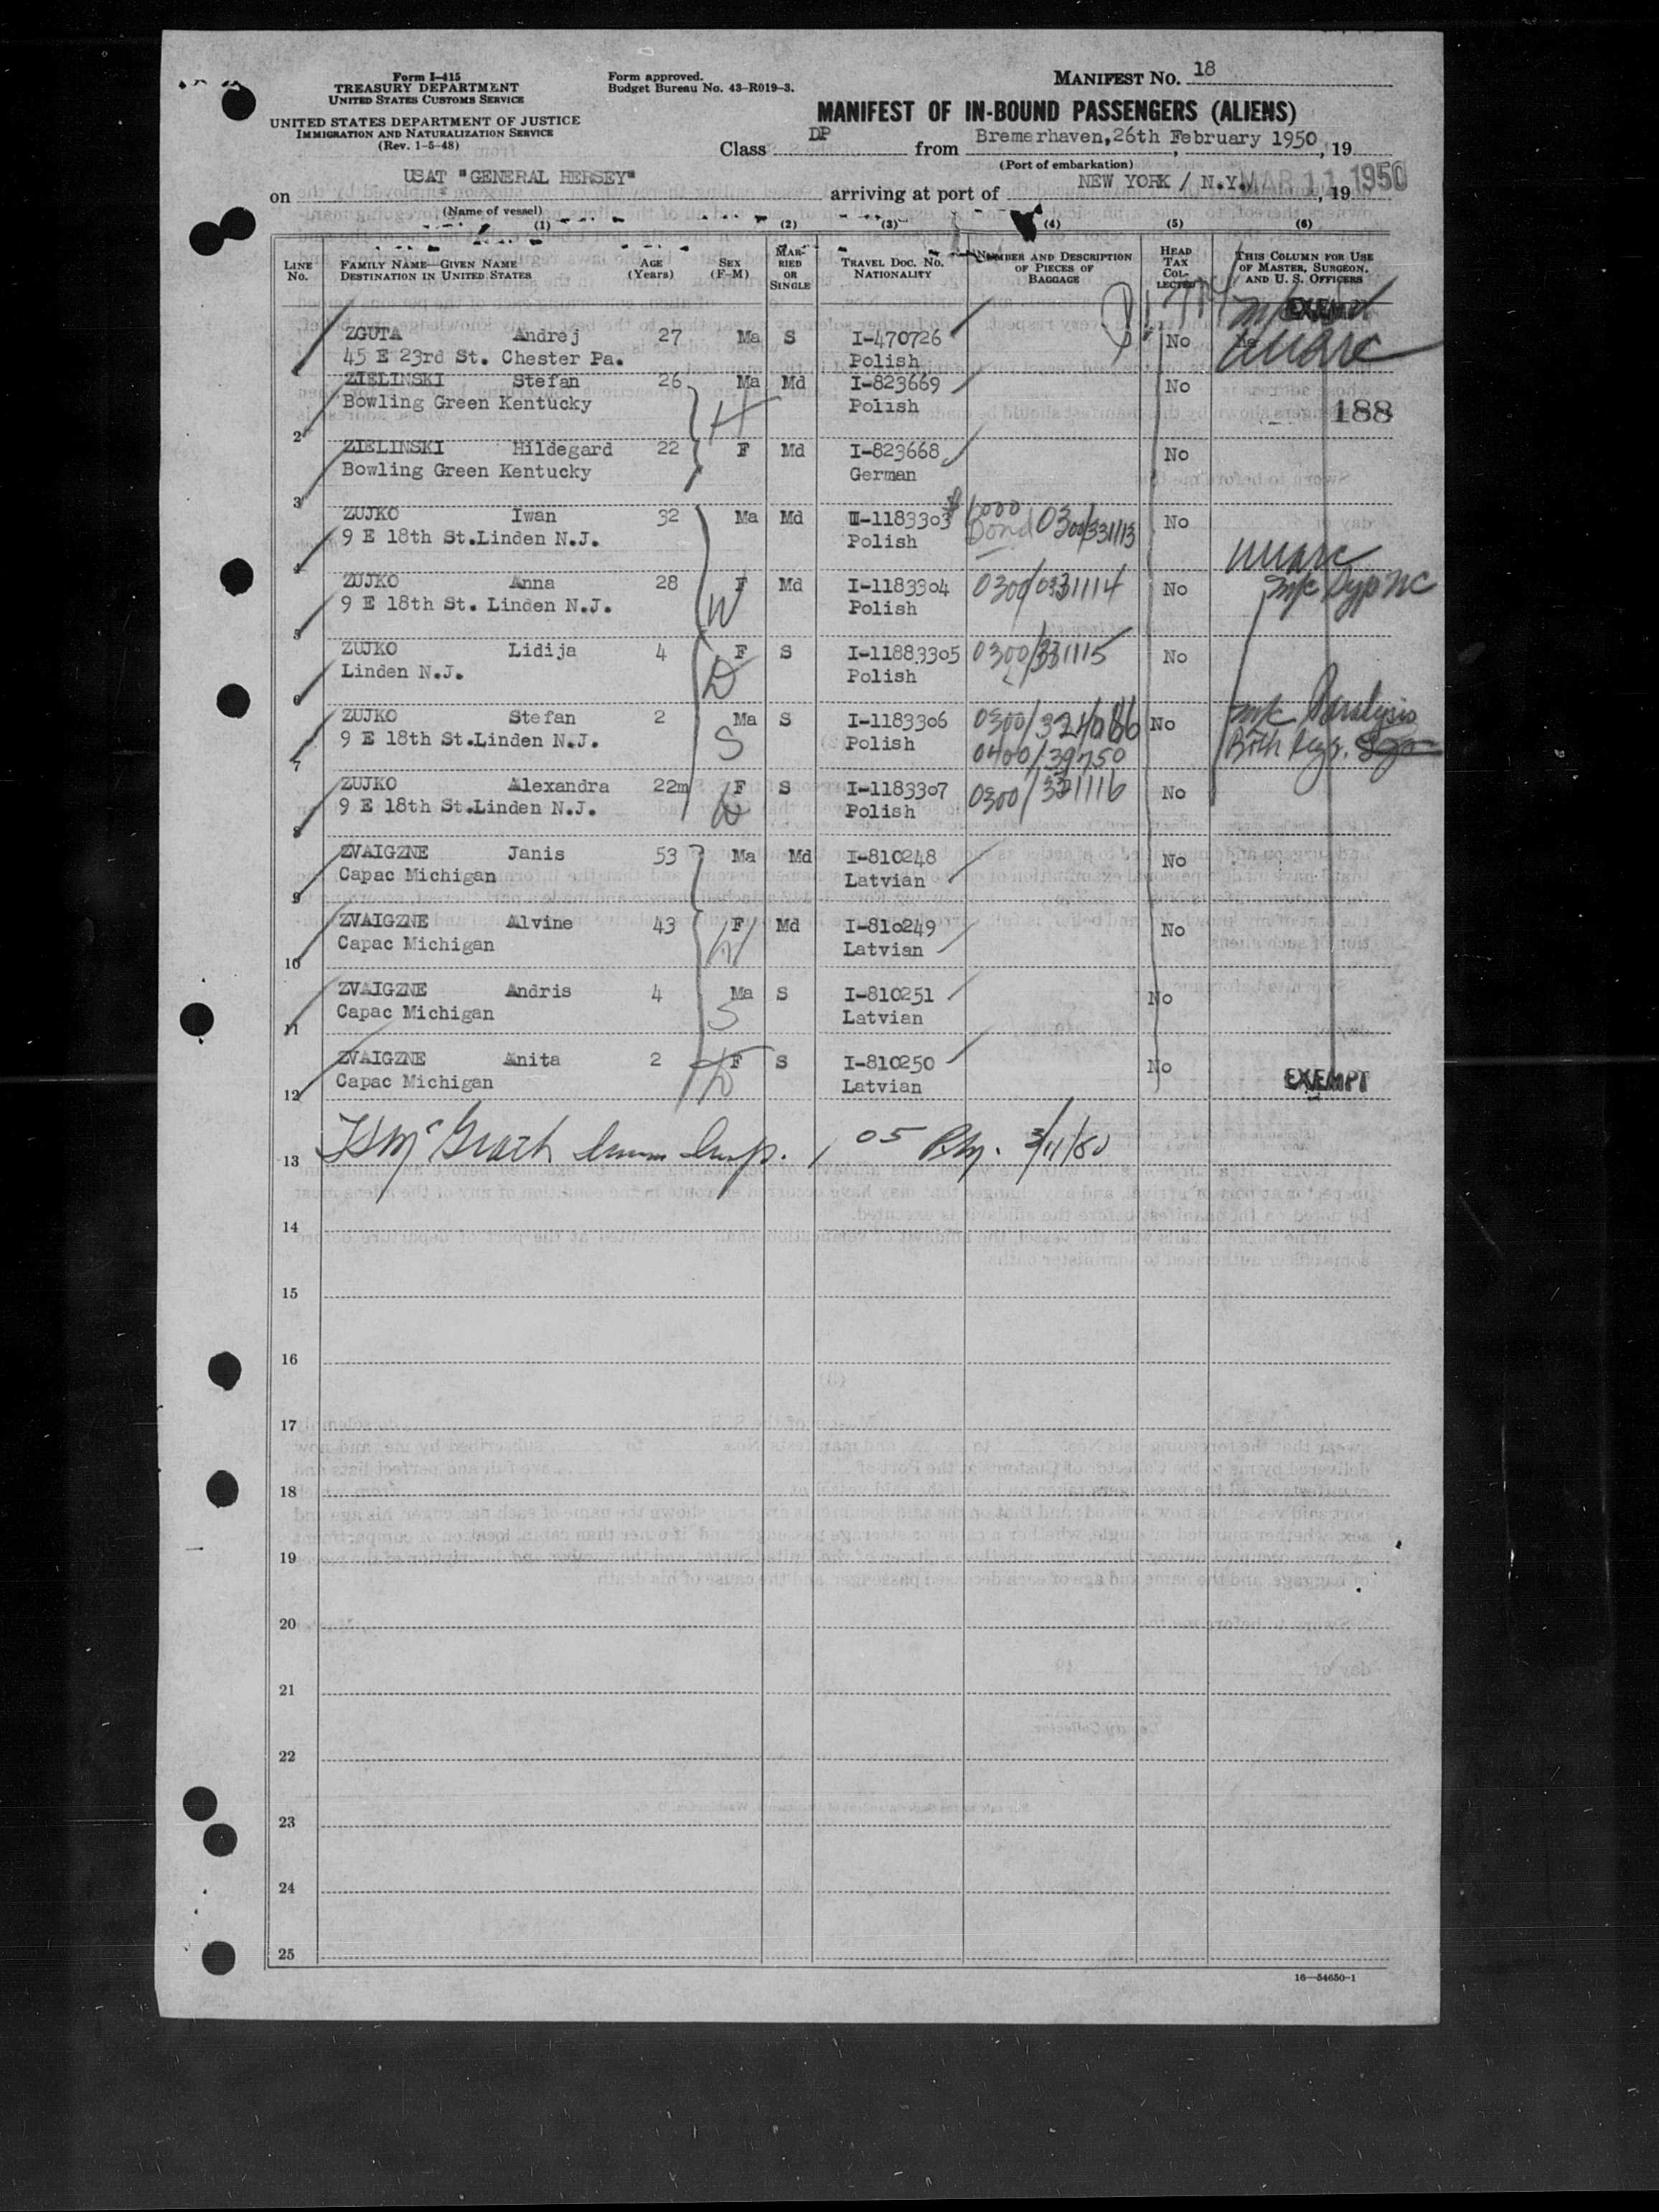 Form I-415
TREASURY DEPARTMENT
UNITED STATES CUSTOMS SERVICE
UNITED STATES DEPARTMENT OF JUSTICE
IMMIGRATION AND NATURALIZATION SERVICE
(Rev. 1-5-48)
Form approved.
Budget Bureau No. 43-R019-3.
MANIFEST NO. 18
MANIFEST OF IN-BOUND PASSENGERS (ALIENS)
Class DP from Bremerhaven,26th February 1950, 19
(Port of embarkation)
on USAT "GENERAL HERSEY" arriving at port of NEW YORK / N.Y. MAR 11 1950, 19
(Name of vessel)
(1) (2) (3) (4) (5) (6)
LINE No. FAMILY NAME—GIVEN NAME DESTINATION IN UNITED STATES AGE (Years) SEX (F-M) MARRIED OR SINGLE TRAVEL DOC. NO. NATIONALITY NUMBER AND DESCRIPTION OF PIECES OF BAGGAGE HEAD TAX COLLECTED THIS COLUMN FOR USE OF MASTER, SURGEON, AND U. S. OFFICERS
EXEMPT
ZGUTA Andrej 27 Ma S I-470726 No
1 45 E 23rd St. Chester Pa. Polish
ZIELINSKI Stefan 26 Ma Md I-823669 No
2 Bowling Green Kentucky H Polish 188
ZIELINSKI Hildegard 22 F Md I-823668 No
3 Bowling Green Kentucky German
ZUJKO Iwan 32 Ma Md I-1183303 $1000 Bond 0300/331113 No
4 9 E 18th St.Linden N.J. Polish
ZUJKO Anna 28 F Md I-1183304 No
5 9 E 18th St. Linden N.J. W Polish
ZUJKO Lidija 4 F S I-11883305 0300/331115 No
6 Linden N.J. D Polish
ZUJKO Stefan 2 Ma S I-1183306 No Paralysis
7 9 E 18th St.Linden N.J. S Polish 0400/39750 Both legs.
ZUJKO Alexandra 22m F S I-1183307 0300/331116 No
8 9 E 18th St.Linden N.J. D Polish
ZVAIGZNE Janis 53 Ma Md I-810248 No
9 Capac Michigan Latvian
ZVAIGZNE Alvine 43 F Md I-810249 No
10 Capac Michigan W Latvian
ZVAIGZNE Andris 4 Ma S I-810251 No
11 Capac Michigan S Latvian
ZVAIGZNE Anita 2 F S I-810250 No
12 Capac Michigan D Latvian EXEMPT
13 McGrath Imm Insp. 3/11/50
14
15
16
17
18
19
20
21
22
23
24
25
16—54650-1